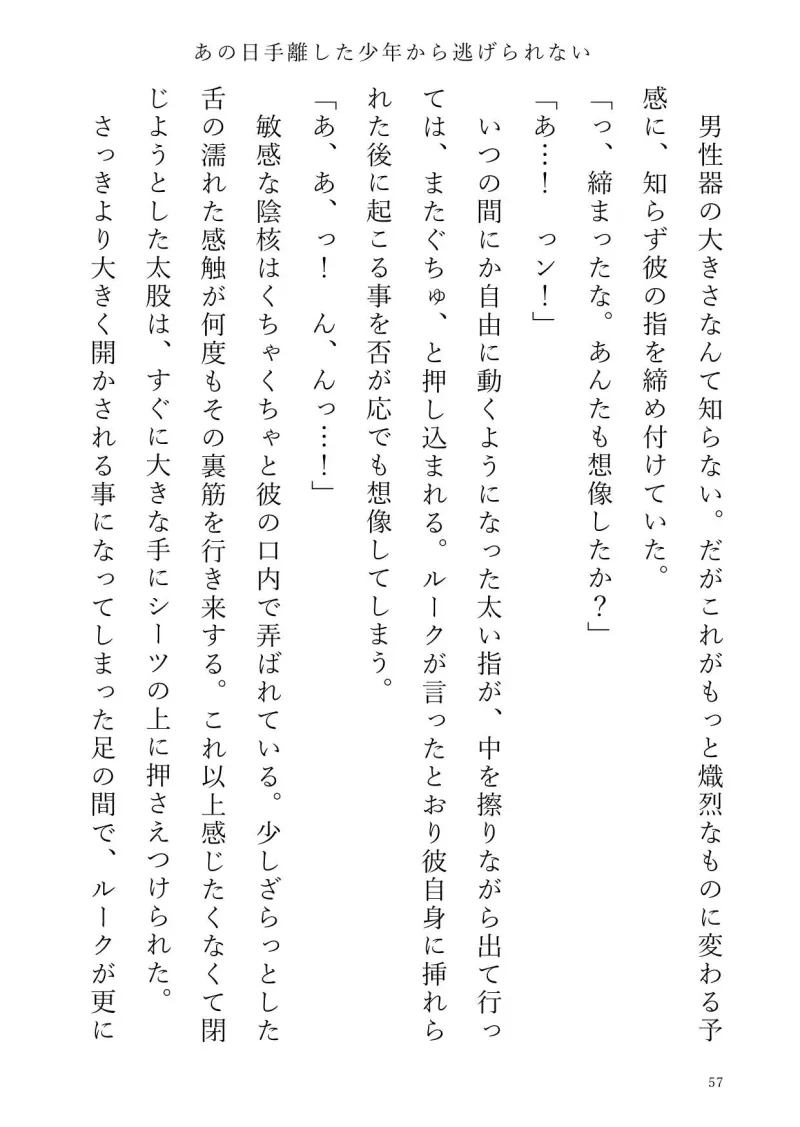 あの日手離した少年から逃げられない
男性器の大きさなんて知らない。だがこれがもっと熾烈なものに変わる予
感に、知らず彼の指を締め付けていた。
「っ、締まったな。あんたも想像したか？」
「あ…！　っン！」
いつの間にか自由に動くようになった太い指が、中を擦りながら出て行っ
ては、またぐちゅ、と押し込まれる。ルークが言ったとおり彼自身に挿れら
れた後に起こる事を否が応でも想像してしまう。
「あ、あ、っ！　ん、んっ…！」
敏感な陰核はくちゃくちゃと彼の口内で弄ばれている。少しざらっとした
舌の濡れた感触が何度もその裏筋を行き来する。これ以上感じたくなくて閉
じようとした太股は、すぐに大きな手にシーツの上に押さえつけられた。
さっきより大きく開かされる事になってしまった足の間で、ルークが更に
57